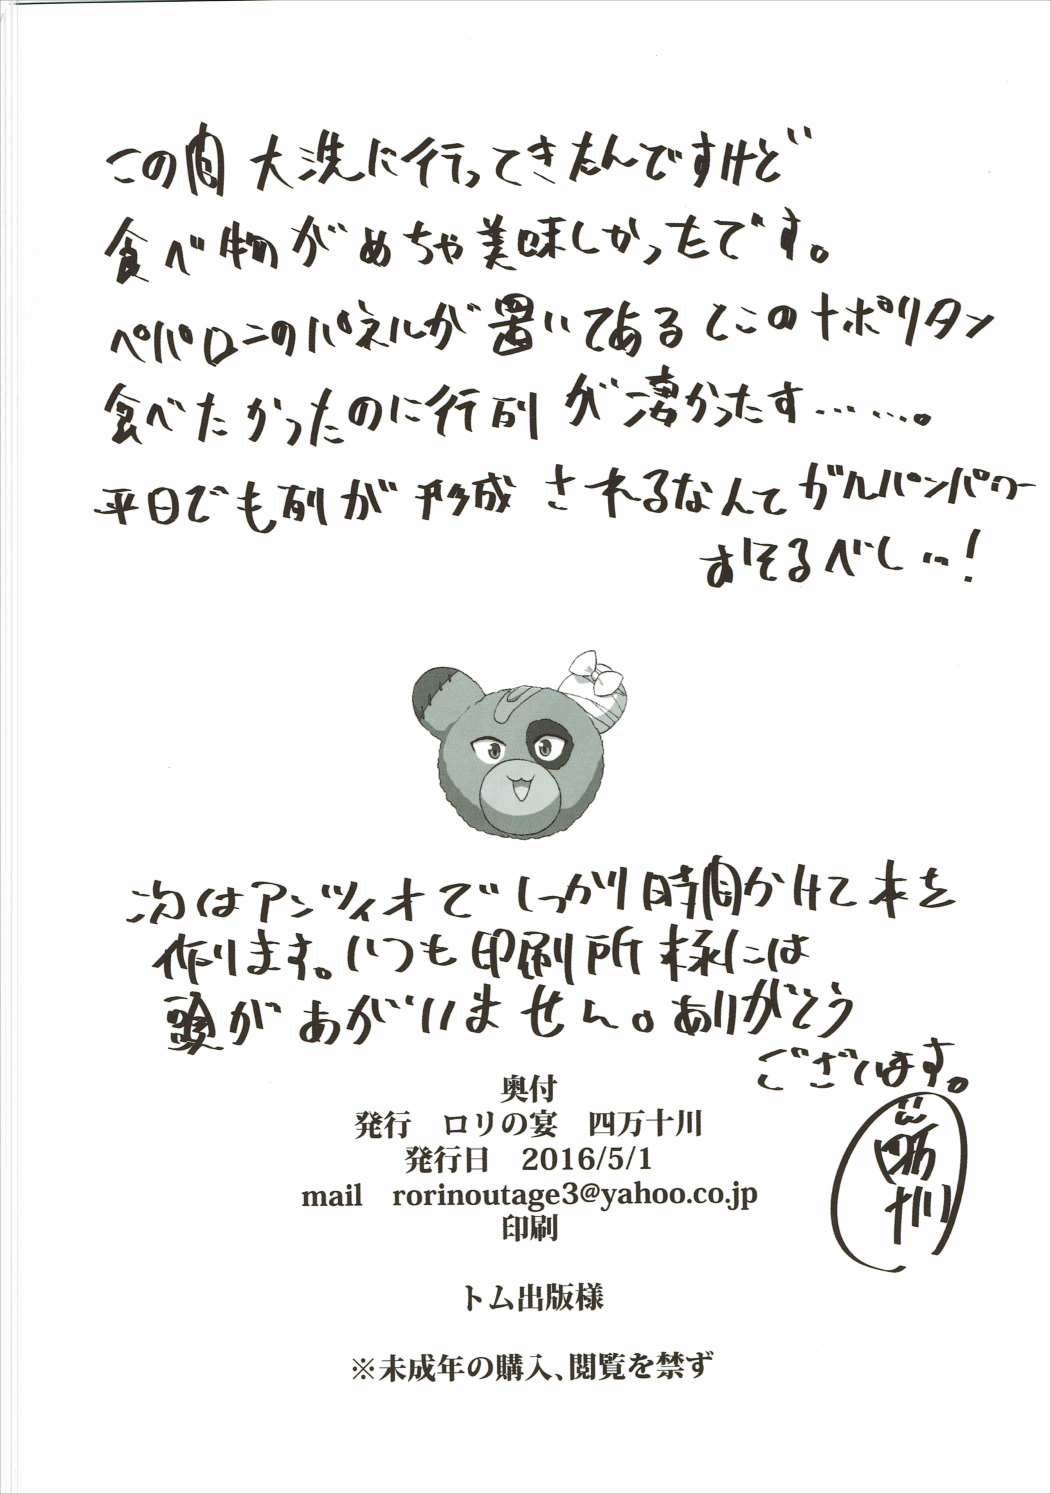 この間大洗に行ってきたんですけど
食べ物がめちゃ美味しかったです。
ペパロニのパネルが置いてあるとこのナポリタン
食べたかったのに行列が凄かったす……。
平日でも列が形成されるなんてガルパンパワー
おそるべし…!
次はアンツィオでしっかり時間かけて本を
作ります。いつも印刷所様には
頭があがいません。ありがとう
ございます。
四万十川
奥付
発行　ロリの宴　四万十川
発行日　2016/5/1
mail　rorinoutage3@yahoo.co.jp
印刷
トム出版様
※未成年の購入、閲覧を禁ず